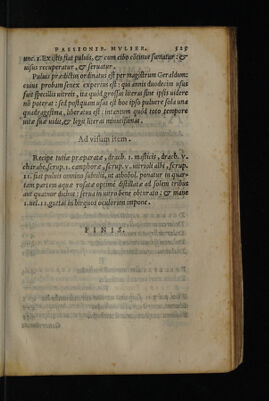 PASSIONIB. MVLIER. 525
unc. 1. Ex istis fiat puluis, & cum cibo cõtinue sumatur: &
uisus recuperatur, & seruatur.
Puluis prædictus ordinatus est per magistrum Geraldum:
cuius probum senex expertus est: qui annis duodecim usus
fuit specillis uitreis, ita quòd grossas literas sine ipsis uidere
nõ poterat: sed postquàm usus est hoc ipso puluere sola una
quadragesima, liberatus est: intantum quòd toto tempore
uitæ suæ ualuit, & legit literas minutissimas.
Ad visum item.
Recipe tutiæ præparatæ, drach. 1. masticis, drach. v.
scrup. 1. camphoræ, scrup. v. uitreoli albi, scrup.
11. fiat puluis omnino subtilis, ut alcohol. ponatur in quar-
tam partem aquæ rosatæ optimè distillatæ ad solem tribus
aut quatuor diebus: serua in uitro bene obturato: & mane
1. uel. 11. guttas in hirquos oculorum impone.
FINIS.